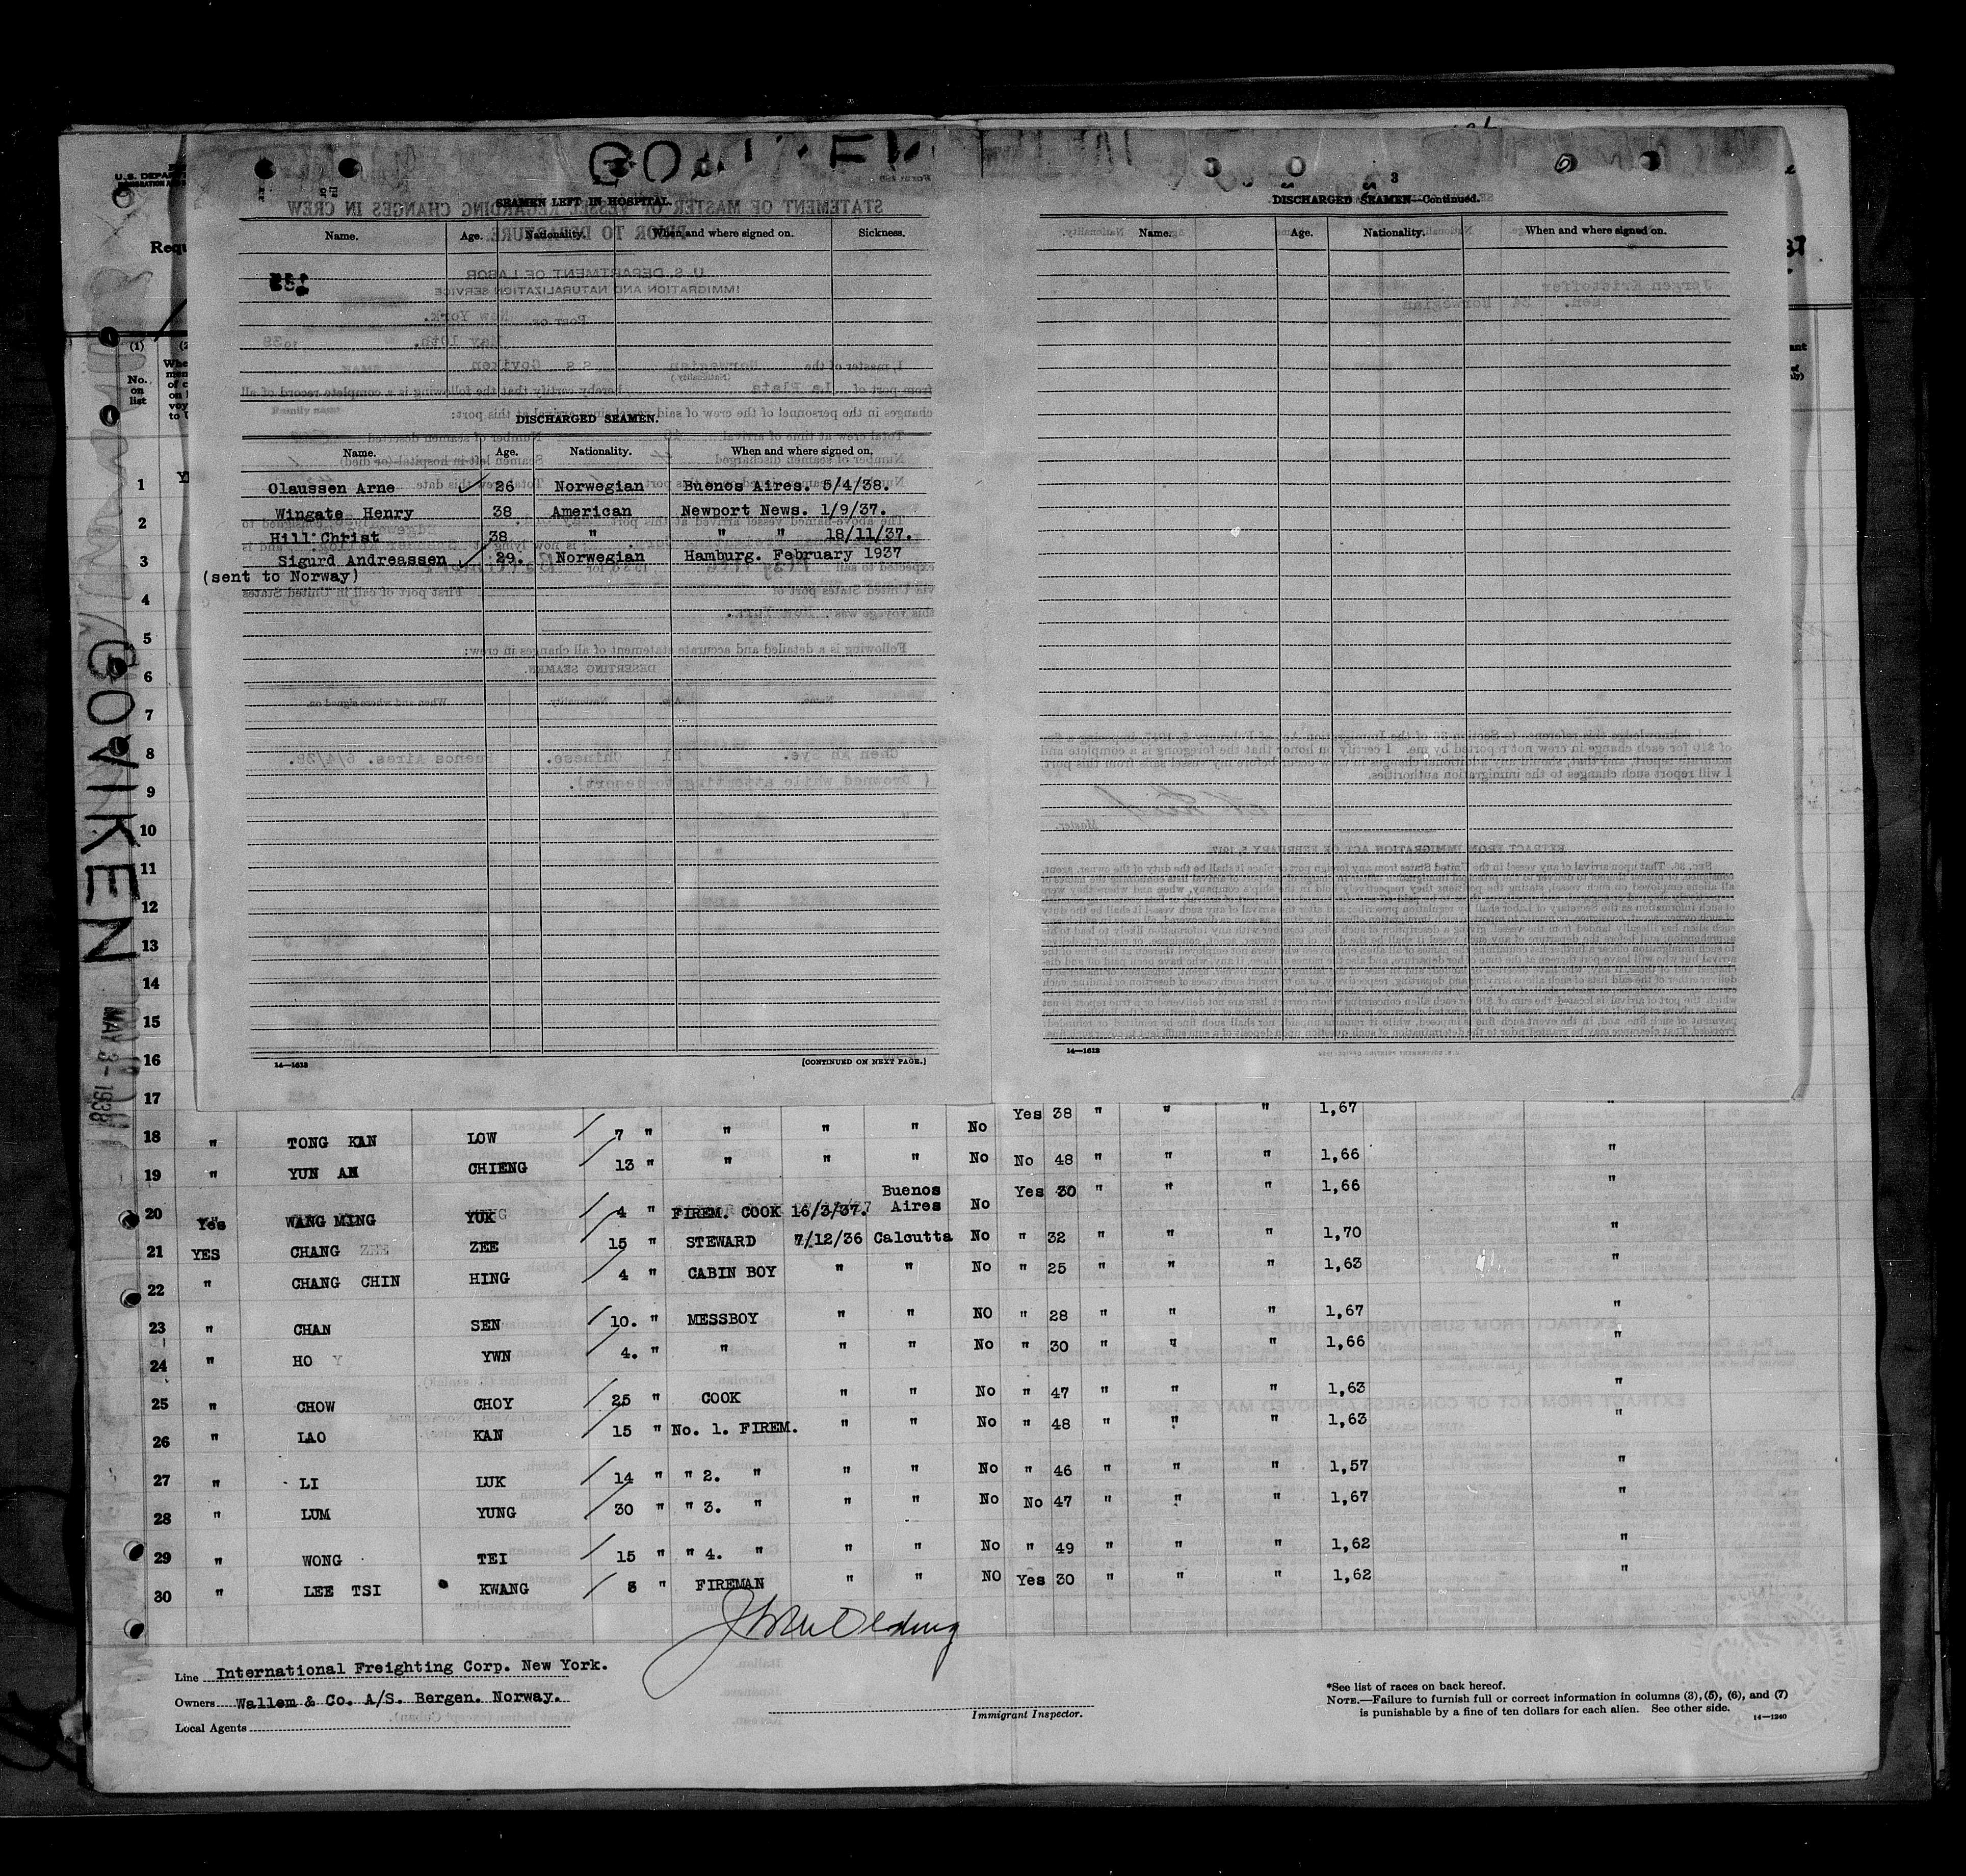 GOVIKEN
U.S. DEPAR
3
SEAMEN LEFT IN HOSPITAL.
Name. Age. Nationality. When and where signed on. Sickness.
DISCHARGED SEAMEN.
Name. Age. Nationality. When and where signed on.
Olaussen Arne 26 Norwegian Buenos Aires. 5/4/38.
Wingate Henry 38 American Newport News. 1/9/37.
Hill Christ 38 " " " 18/11/37.
Sigurd Andreassen 29. Norwegian Hamburg. February 1937
(sent to Norway)
14—1613
[CONTINUED ON NEXT PAGE.]
DISCHARGED SEAMEN—Continued.
Name. Age. Nationality. When and where signed on.
14—1613
Requ
(1)
No. on list
GOVIKEN
MAY 3- 1938
1
2
3
4
5
6
7
8
9
10
11
12
13
14
15
16
17 Yes 38 " " " 1,67 "
18 " TONG KAN LOW 7 " " " " No No 48 " " " 1,66 "
19 " YUN AN CHIENG 13 " " " " No Yes 30 " " " 1,66 "
20 Yes WANG MING YUK 4 " FIREM. COOK 16/3/37. Buenos Aires No
21 YES CHANG ZEE 15 " STEWARD 7/12/36 Calcutta No " 32 " " " 1,70 "
22 " CHANG CHIN HING 4 " CABIN BOY " " No " 25 " " " 1,63 "
23 " CHAN SEN 10. " MESSBOY " " NO " 28 " " " 1,67 "
24 " HO YWN 4. " " " " No " 30 " " " 1,66 "
25 " CHOW CHOY 25 " COOK " " No " 47 " " " 1,63 "
26 " LAO KAN 15 " No. 1. FIREM. " " No " 48 " " " 1,63 "
27 " LI LUK 14 " " 2. " " " No " 46 " " " 1,57 "
28 " LUM YUNG 30 " " 3. " " " No No 47 " " " 1,67 "
29 " WONG TEI 15 " " 4. " " " No " 49 " " " 1,62 "
30 " LEE TSI KWANG 3 " FIREMAN " " NO Yes 30 " " " 1,62 "
Line International Freighting Corp. New York.
Owners Wallem & Co. A/S. Bergen. Norway.
Local Agents
Immigrant Inspector.
*See list of races on back hereof.
NOTE.—Failure to furnish full or correct information in columns (3), (5), (6), and (7)
is punishable by a fine of ten dollars for each alien. See other side.
14—1240